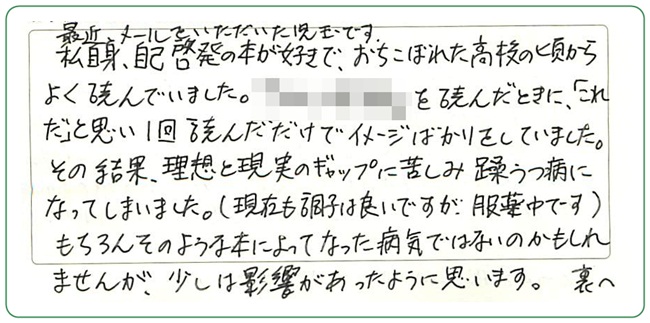 最近、メールをいただいた児玉です。
私自身、自己啓発の本が好きで、おちこぼれた高校の頃から
よく読んでいました。を読んだときに、「これ
だ」と思い1回読んだだけでイメージばかりをしていました。
その結果、理想と現実のギャップに苦しみ躁うつ病に
なってしまいました。(現在も調子は良いですが、服薬中です)
もちろんそのような本によってなった病気ではないのかもしれ
ませんが、少しは影響があったように思います。 裏へ